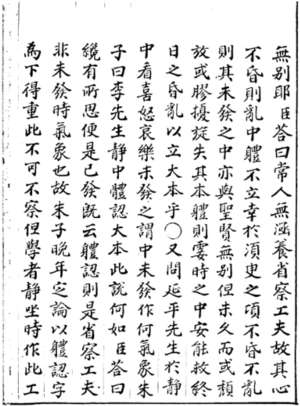 無別耶臣荅曰常人無涵養省察工夫故其心
不昏則亂中體不立幸於須臾之頃不昏不亂
則其未發之中亦與聖賢無別但未久而或頹
放或膠擾旋失其本體則霎時之中安能救終
日之昏亂以立大本乎○又問延平先生於靜
中看喜怒哀樂未發之謂中未發作何氣象朱
子曰李先生靜中體認大本此說何如臣荅曰
纔有所思便是已發既云體認則是省察工夫
非未發時氣象也故朱子晚年定論以體認字
為下得重此不可不察但學者靜坐時作此工